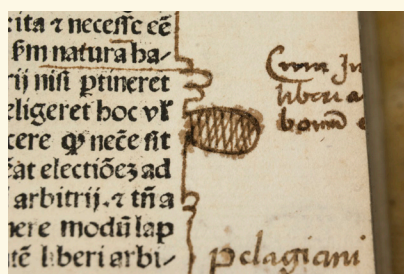 cita ⁊ necesse eē
ſm natura ha-
rij niſi ꝑtineret
eligeret hoc vꝉ
cere ꝙ necē ſit
ēat electiōeʒ ad
arbitrij. ⁊ tn̄a
nere modū lap
tē liberi arbi-
Cum In
liberi a
bonū
pelagiani